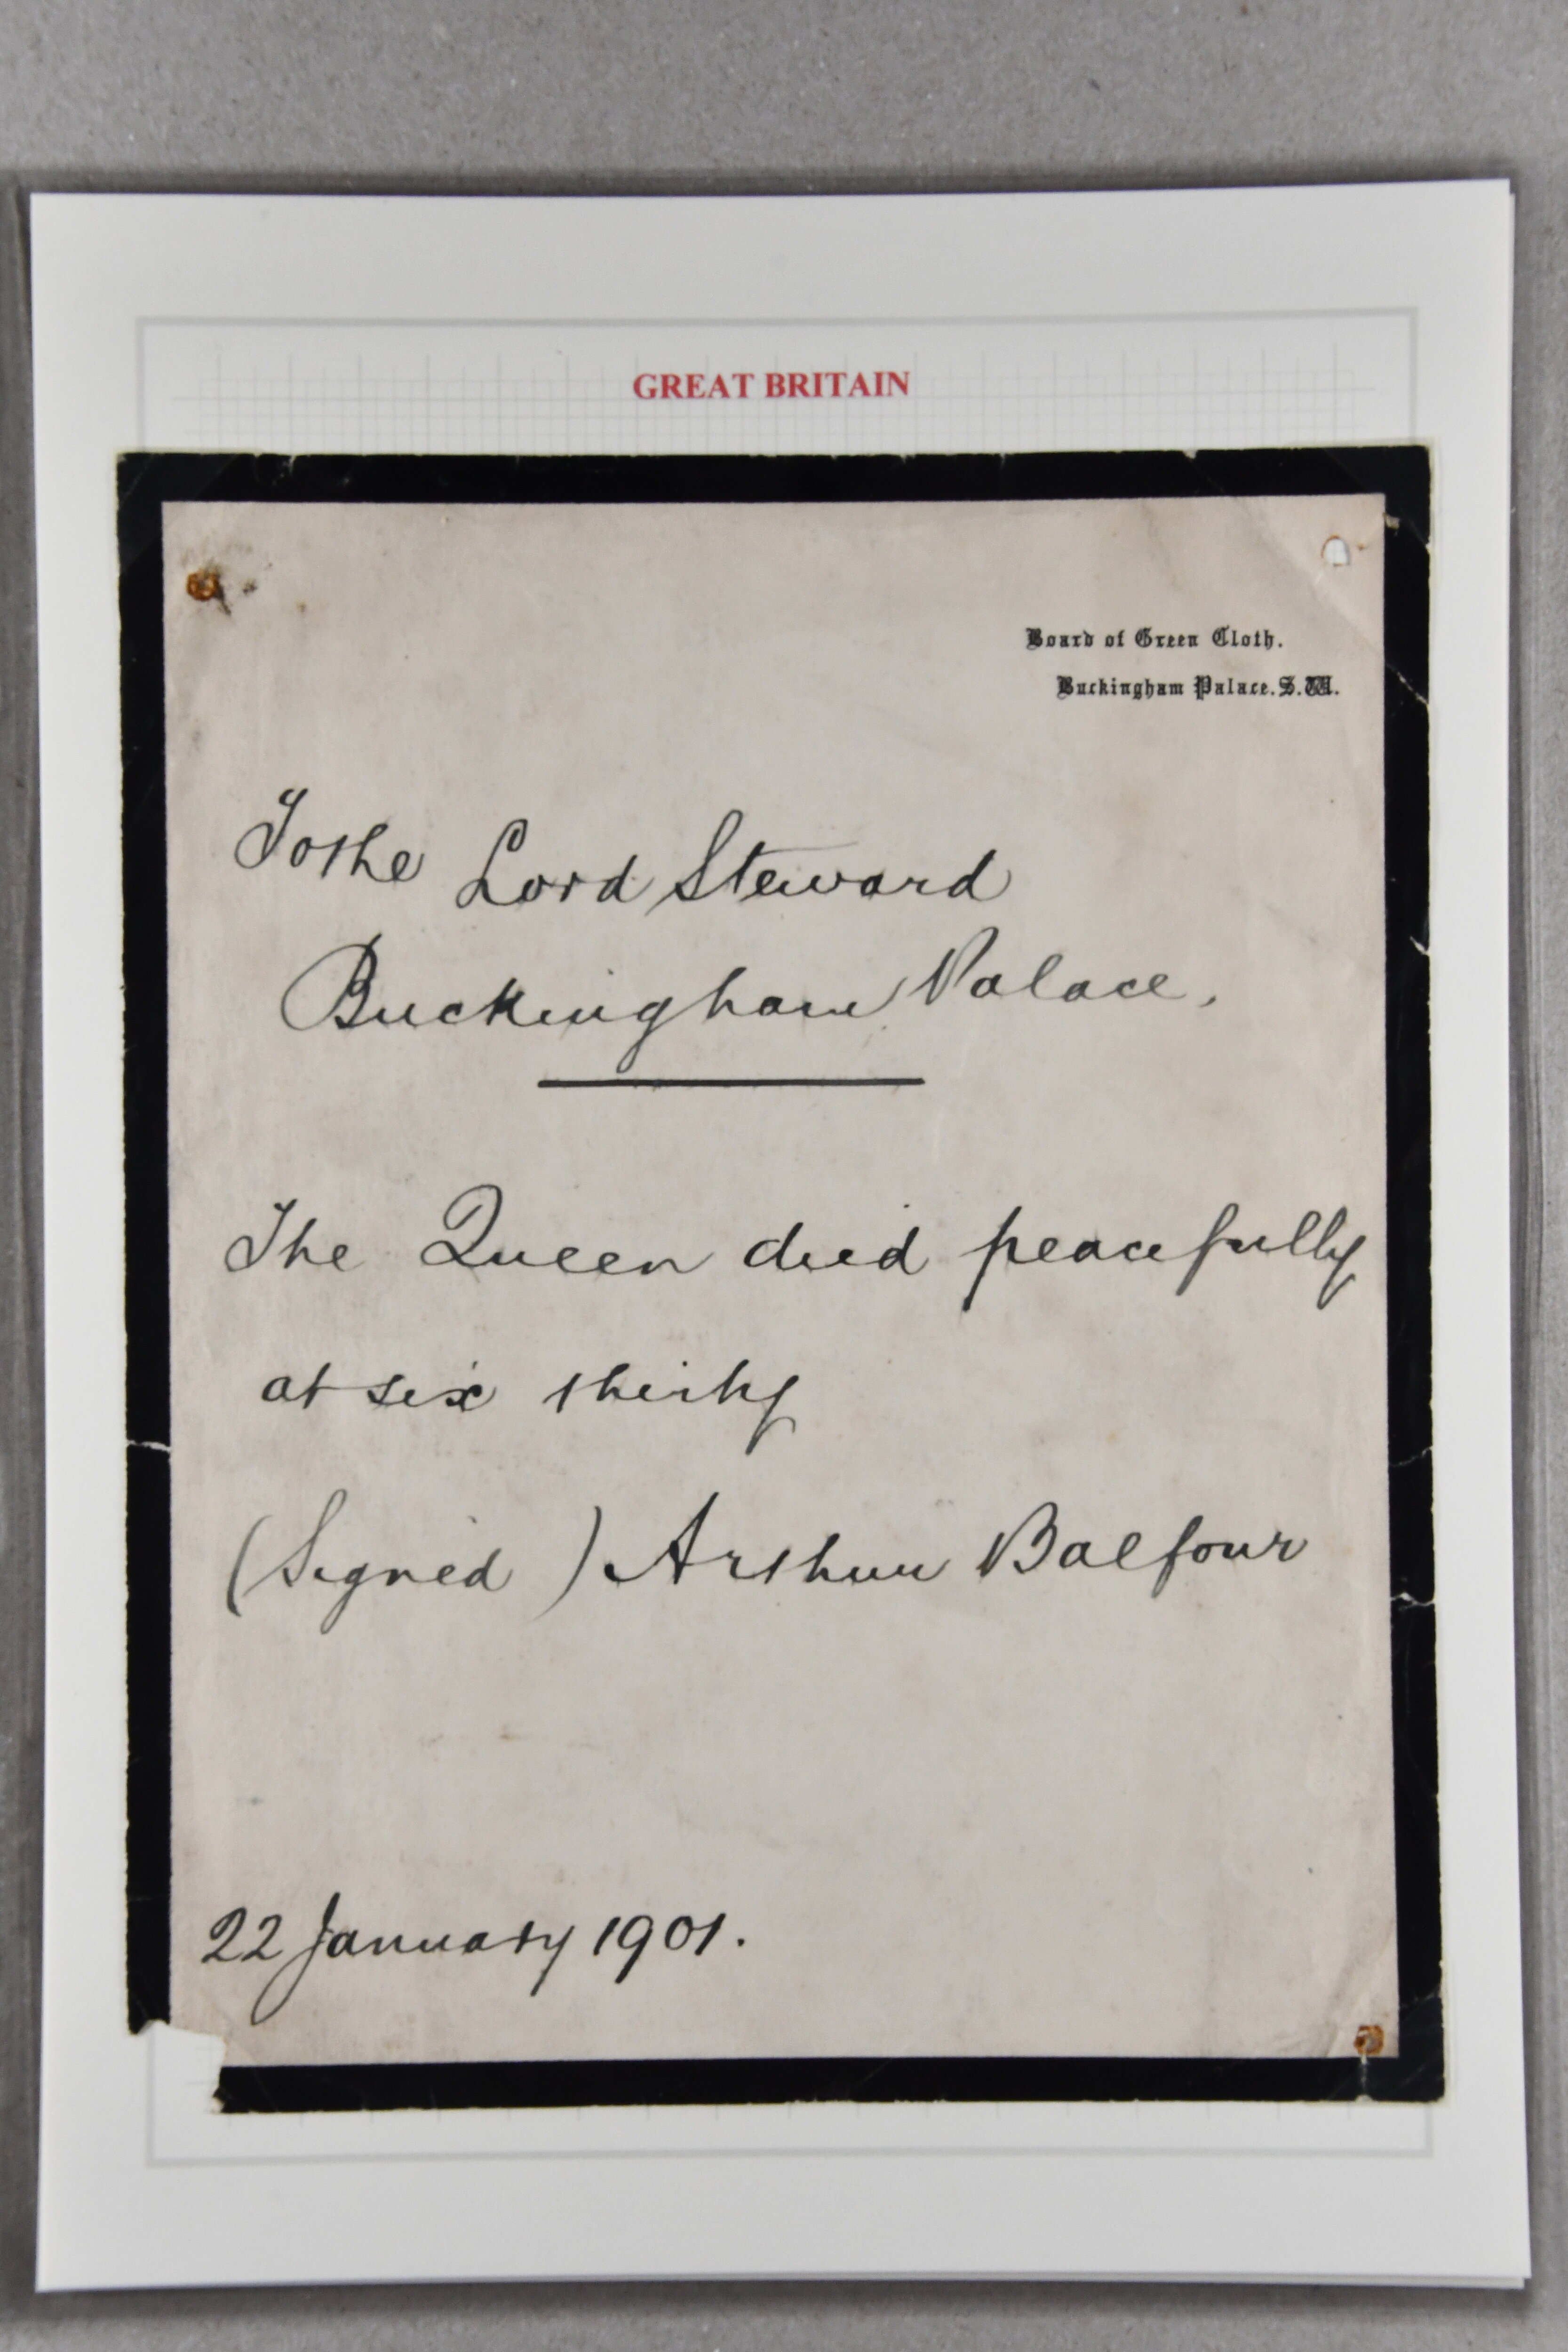 GREAT BRITAIN
Board of Green Cloth.
Buckingham Palace. S.W.
To the Lord Steward
Buckingham Palace,
The Queen died peacefully
at six thirty
(Signed) Arthur Balfour
22 January 1901.